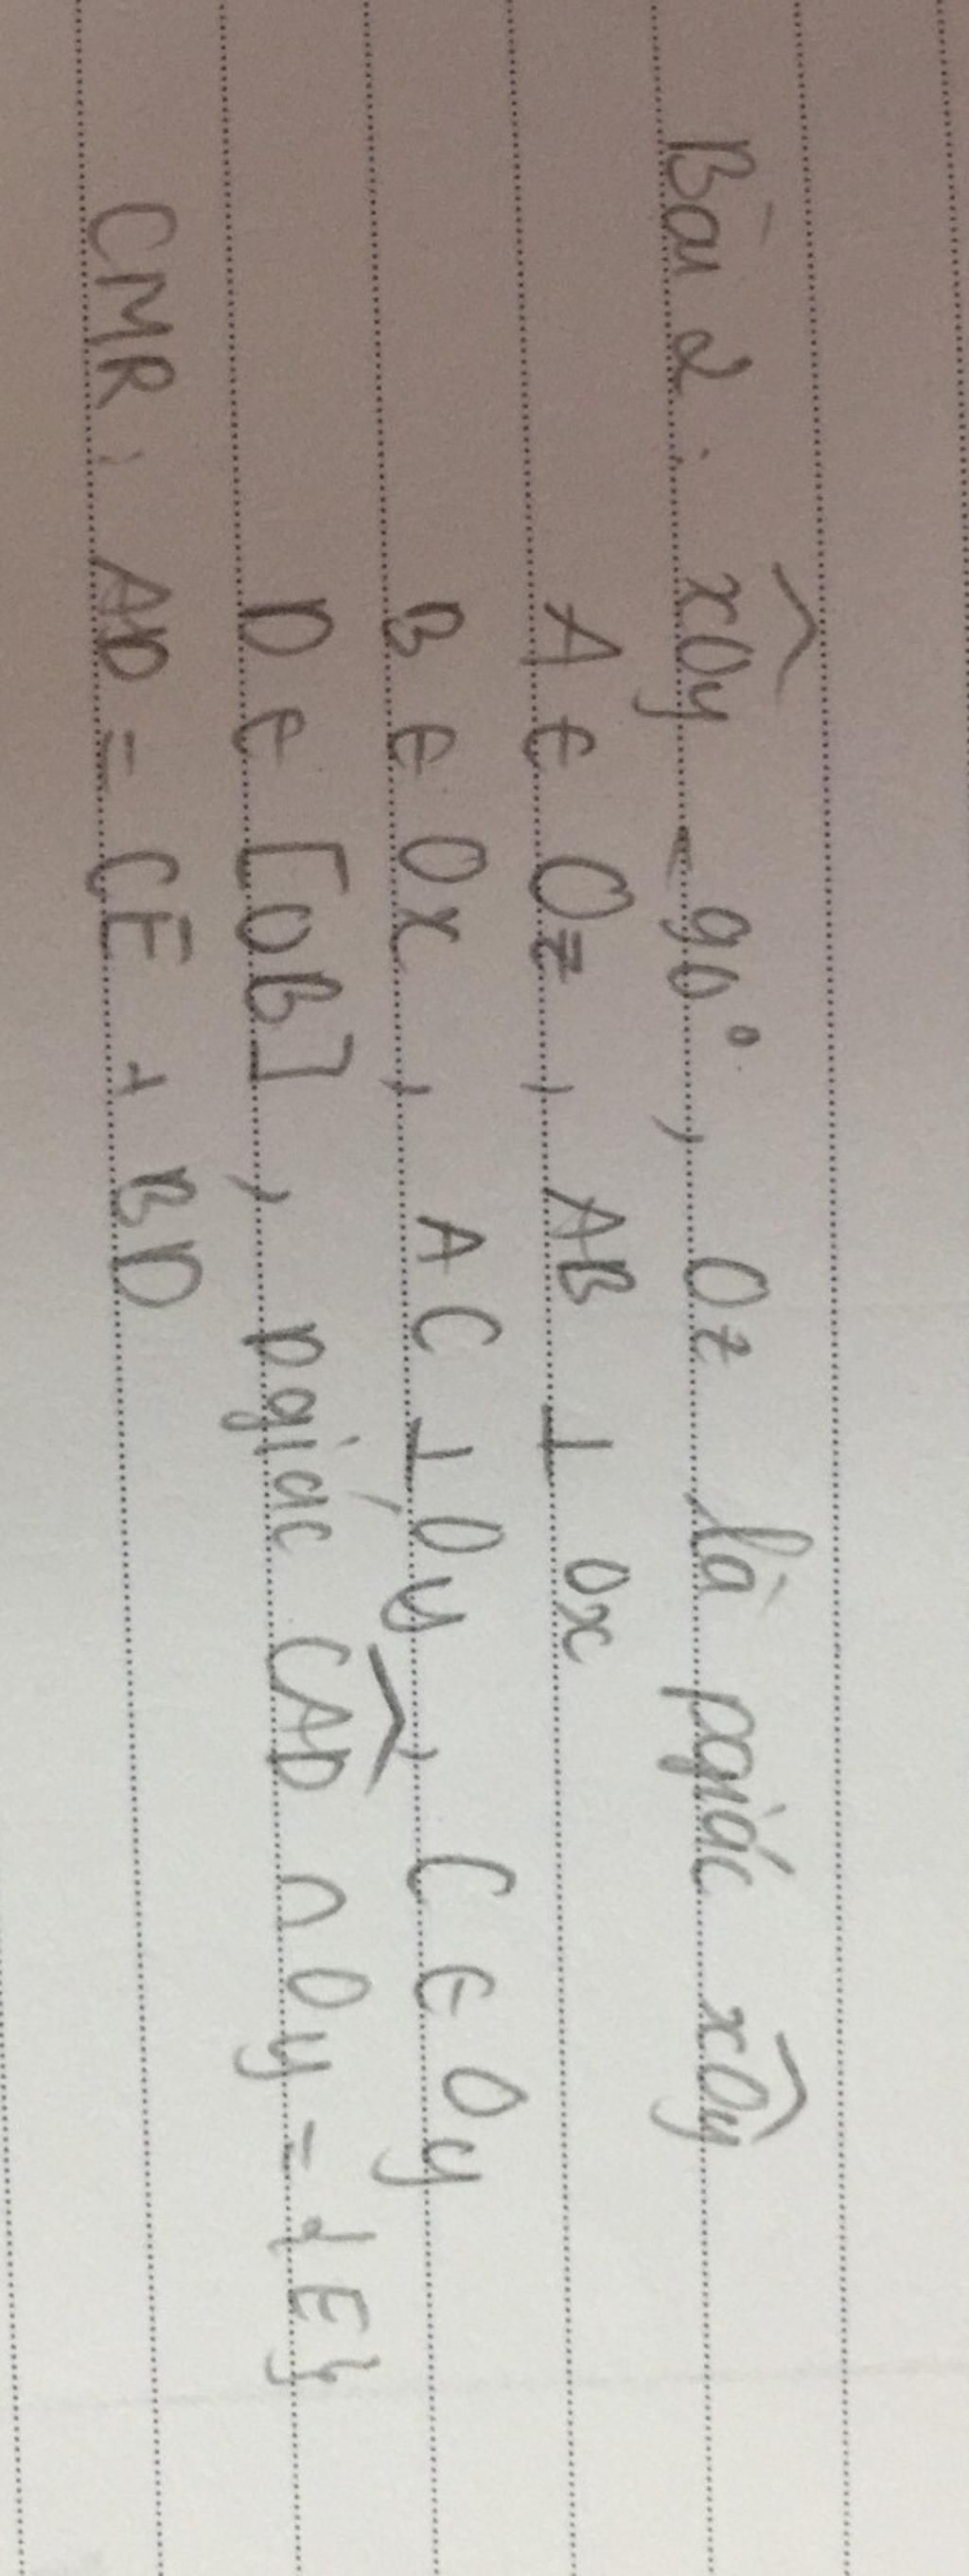 Bài 2: x̂Oy < 90°, Oz là pgiác x̂Oy
A ∈ Oz, AB ⊥ Ox
B ∈ Ox, AC ⊥ Oy, C ∈ Oy
D ∈ [OB], pgiác ĈAD ∩ Oy = {E}
CMR: AD = CE + BD